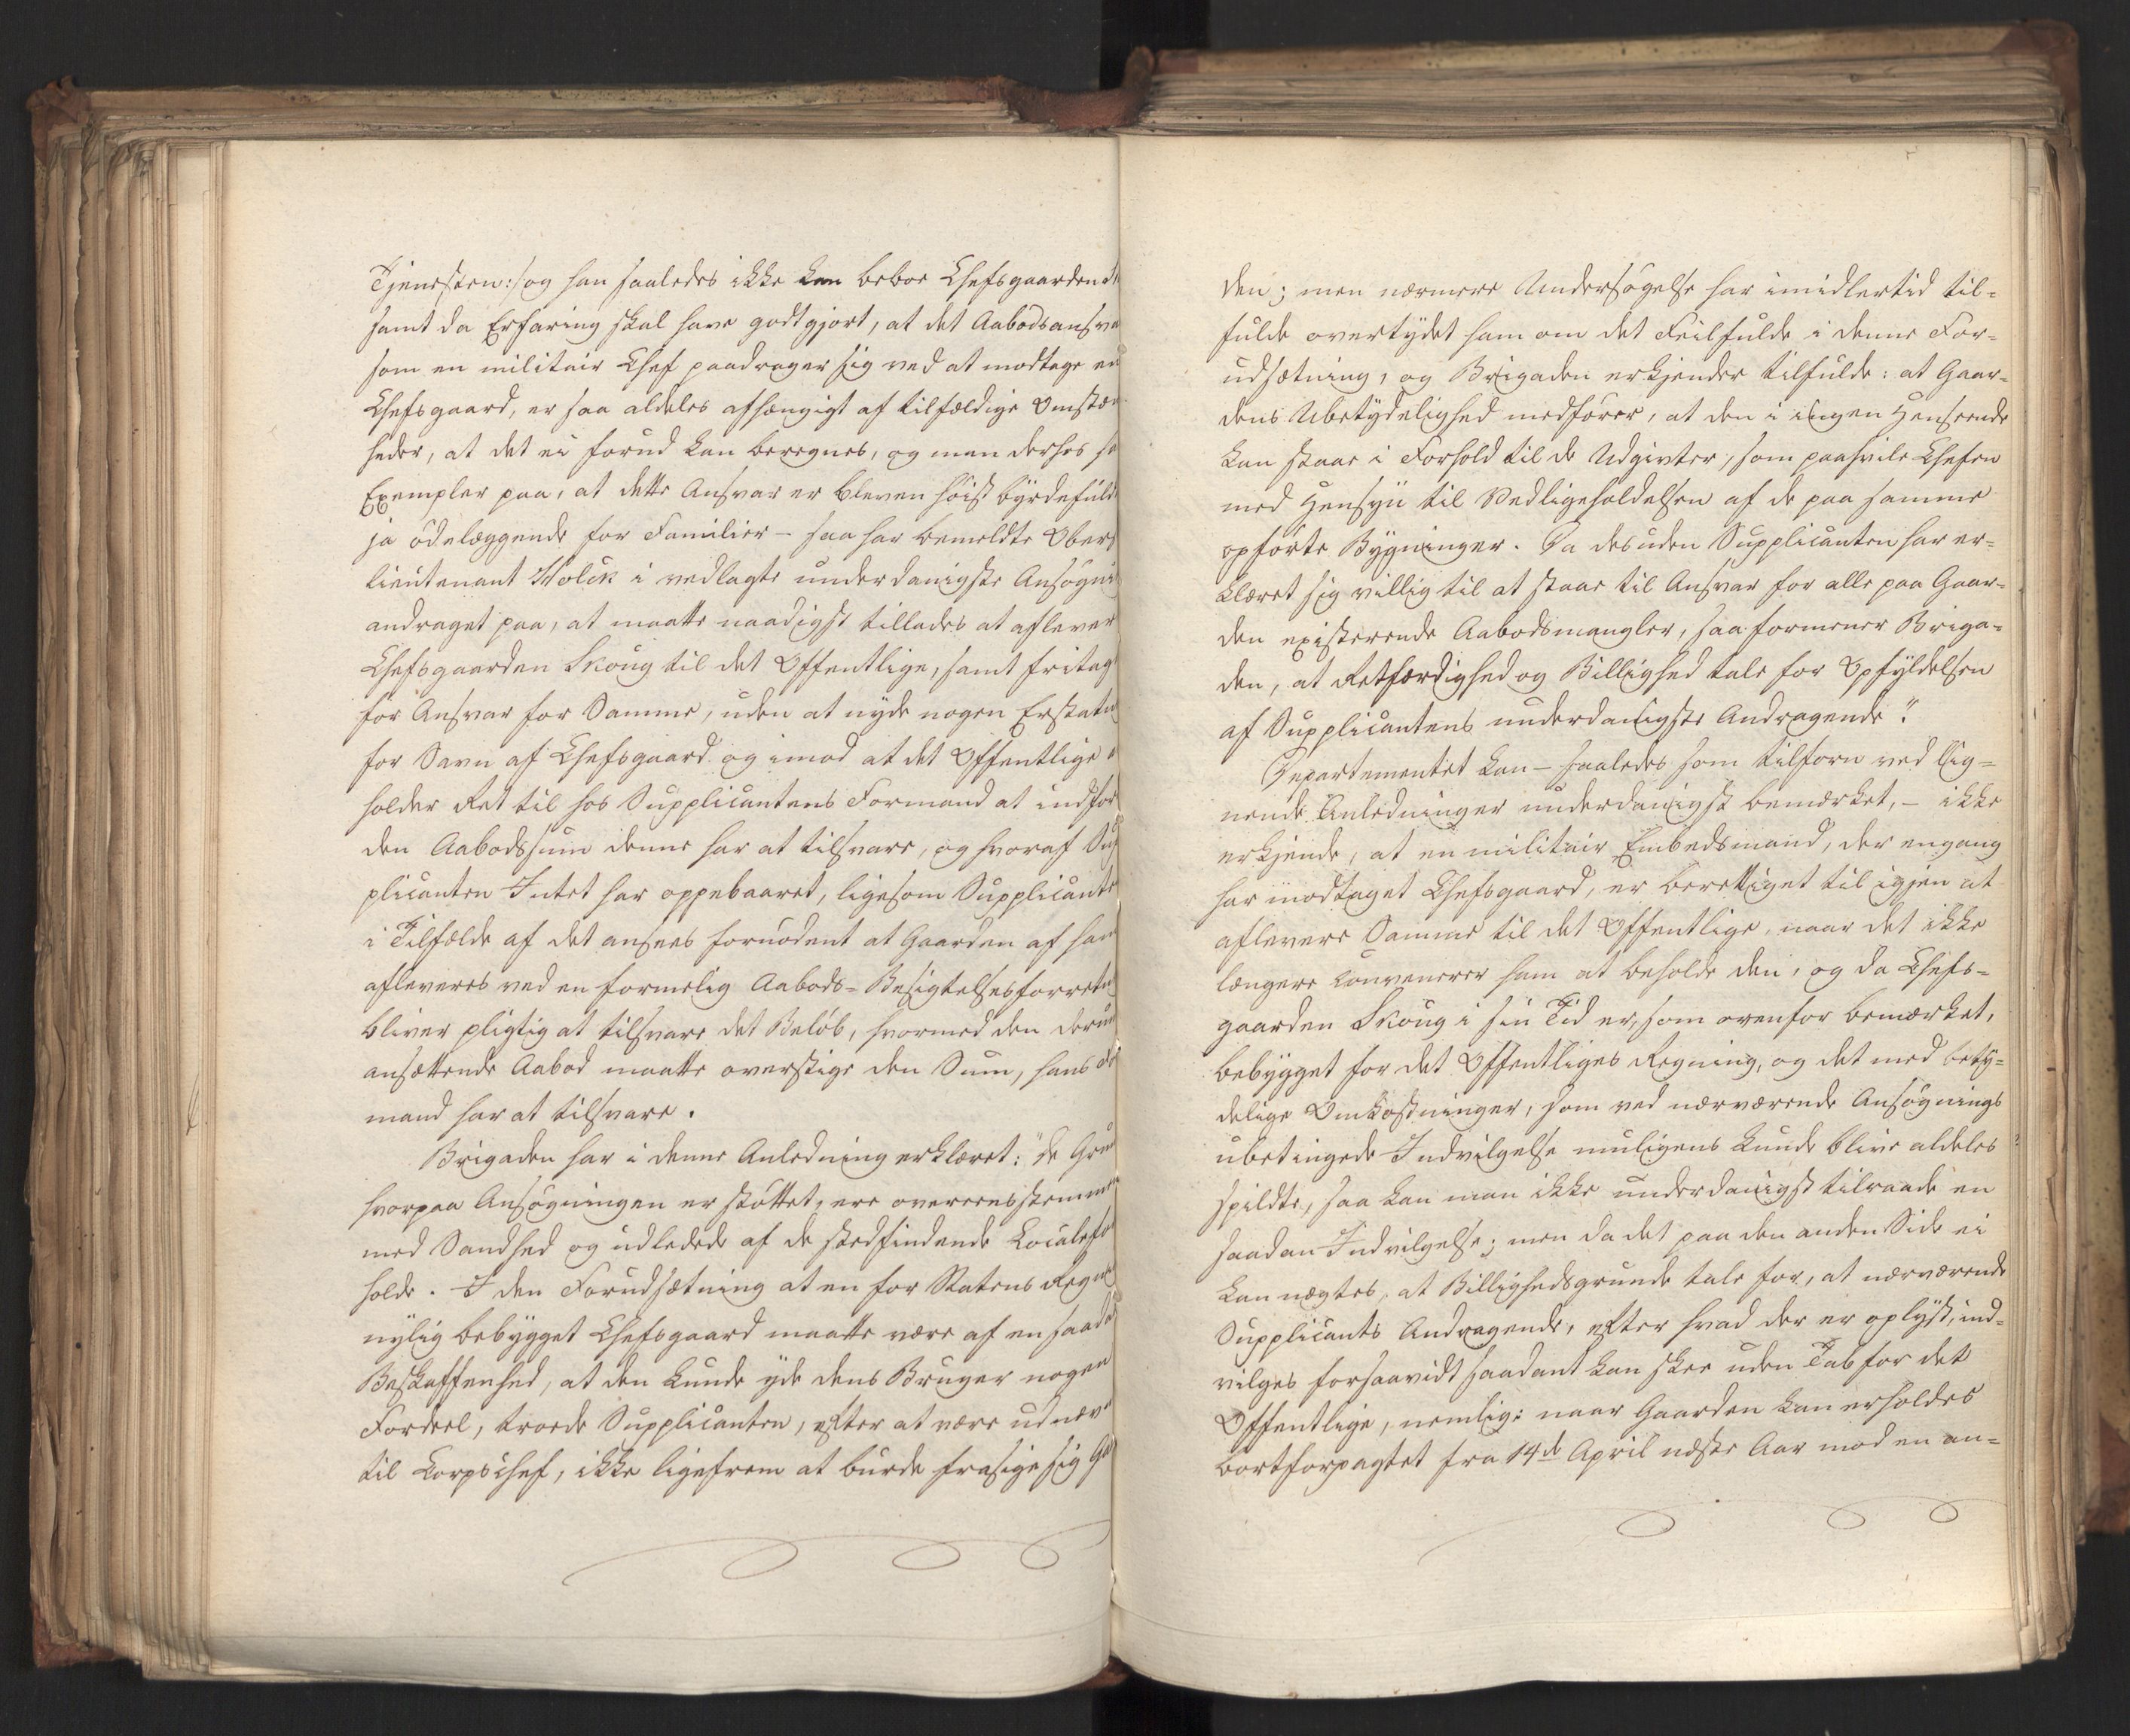 Tjenesten:/ og han saaledes ikke kan beboe Chefsgaarden
samt da Erfaring skal have godtgjort, at det Aabodsansva
som en militair Chef paadrager sig ved at modtage en
Chefsgaard, er saa aldeles afhængigt af tilfældige Omstæn
heder, at det ei forud kan beregnes, og man derhos ha
Exempler paa, at dette Ansvar er bleven høist byrdefuld
ja ødelæggende for Familier – saa har bemeldte Oberst
lieutenant Holck i vedlagte underdanigste Ansøgni
andraget paa, at maatte naadigst tillades at aflever
Chefsgaarden Skoug til det Offentlige, samt fritag
for Ansvar for Samme, uden at nyde nogen Erstatn
for Savn af Chefsgaard og imod at det Offentlige
holder Ret til hos Supplicantens Formand at indfor
den Aabodssum denne har at tilsvare, og hvoraf Sup
plicanten Intet har oppebaaret, ligesom Supplicante
i Tilfælde af det ansees fornødent at Gaarden af ham
afleveres ved en formelig Aabods-Besigtelsesforretn
bliver pligtig at tilsvare det Beløb, hvormed den derun
ansættende Aabod maatte overstige den Sum, hans
mand har at tilsvare.
Brigaden har i denne Anledning erklæret: "de Grun
hvorpaa Ansøgningen er støttet, ere overeensstemme
med Sandhed og udledede af de stedfindende Localefor
holde. I den Forudsætning at en for Statens Regni
nylig bebygget Chefsgaard maatte være af en saada
Beskaffenhed, at den kunde yde dens Bruger nogen
Fordeel, troede Supplicanten, efter at være udnæv
til Corpschef, ikke ligefrem at burde frasige sig Ga
den; men nærmere Undersøgelse har imidlertid til-
fulde overtydet ham om det Feilfulde i denne For-
udsætning, og Brigaden erkjender tilfulde: at Gaar-
dens Ubetydelighed medfører, at den i ingen Henseende
kan staae i Forhold til de Udgivter, som paahvile Chefen
med Hensyn til Vedligeholdelsen af de paa samme
opførte Bygninger. Da desuden Supplicanten har er-
klæret sig villig til at staae til Ansvar for alle paa Gaar-
den existerende Aabodsmangler, saa formener Briga-
den, at Retfærdighed og Billighed tale for Opfyldelsen
af Supplicantens underdanigste Andragende".
Departementet kan – saaledes som tilforn ved lig-
nende Anledninger underdanigst bemærket, – ikke
erkjende, at en militair Embedsmand, der engang
har modtaget Chefsgaard, er berettiget til igjen at
aflevere Samme til det Offentlige, naar det ikke
længere convenerer ham at beholde den, og da Chefs-
gaarden Skoug i sin Tid er, som ovenfor bemærket,
bebygget for det Offentliges Regning, og det med bety-
delige Omkostninger, som ved nærværende Ansøgnings
ubetingede Indvilgelse muligens kunde blive aldeles
spildte, saa kan man ikke underdanigst tilraade en
saadan Indvilgelse; men da det paa den anden Side ei
kan nægtes, at Billighedsgrunde tale for, at nærværende
Supplicants Andragende, efter hvad der er oplyst, ind-
vilges forsaavidt saadant kan skee uden Tab for det
Offentlige, nemlig: naar Gaarden kan erholdes
bortforpagtet fra 14de April næste Aar mod en an-